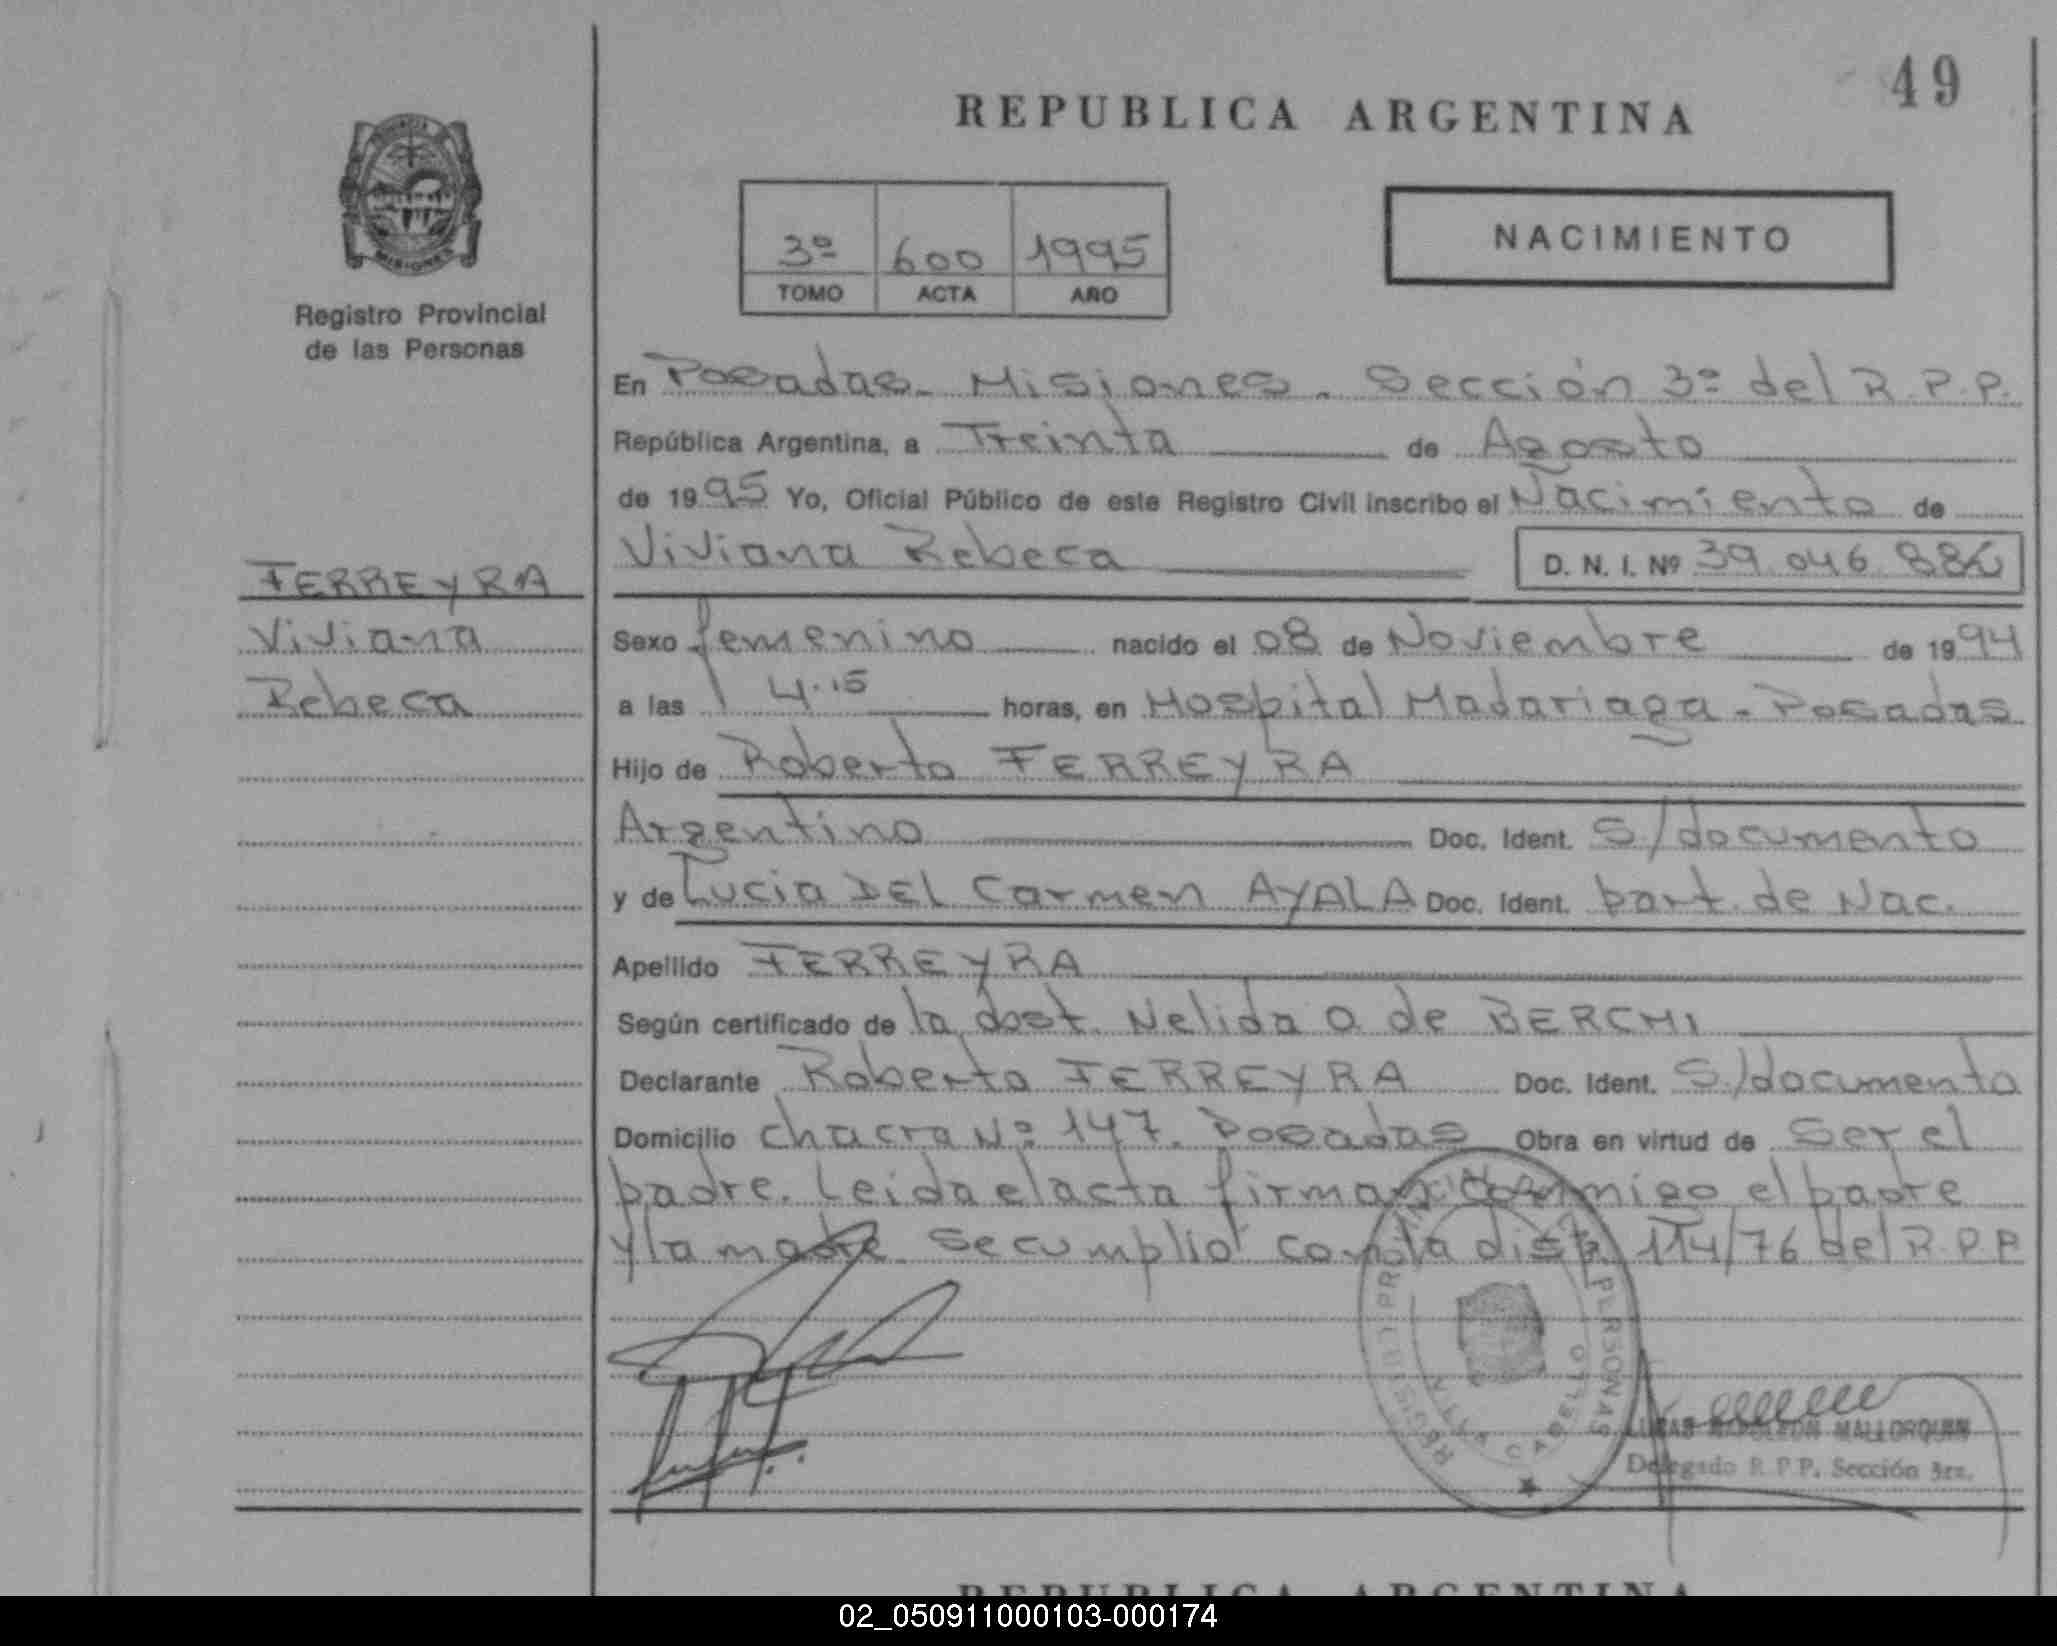 49
REPUBLICA ARGENTINA
3º 600 1995
TOMO ACTA AÑO
NACIMIENTO
Registro Provincial
de las Personas
En Posadas - Misiones - Sección 3º del R.P.P.
República Argentina, a Treinta de Agosto
de 1995 Yo, Oficial Público de este Registro Civil inscribo el Nacimiento de
Viviana Rebeca D. N. I. Nº 39.046.88
FERREYRA
Viviana
Rebeca
Sexo femenino nacido el 08 de Noviembre de 1994
a las 4.15 horas, en Hospital Madariaga - Posadas
Hijo de Roberto FERREYRA
Argentino Doc. Ident. S/documento
y de Lucia DEL Carmen AYALA Doc. Ident. part. de Nac.
Apellido FERREYRA
Según certificado de la obst. Nelida O. de BERCHI
Declarante Roberto FERREYRA Doc. Ident. S/documento
Domicilio chacra Nº 147. Posadas Obra en virtud de Ser el
padre. Leida el acta firman conmigo el padre
y la madre. Se cumplió con la disp. 114/76 del R.P.P.
REGISTRO PROVINCIAL PERSONAS
VILLA CABELLO
LUCAS NAPOLEON MALLORQUIN
Delegado R.P.P. Sección 3ra.
REPUBLICA ARGENTINA
02_050911000103-000174